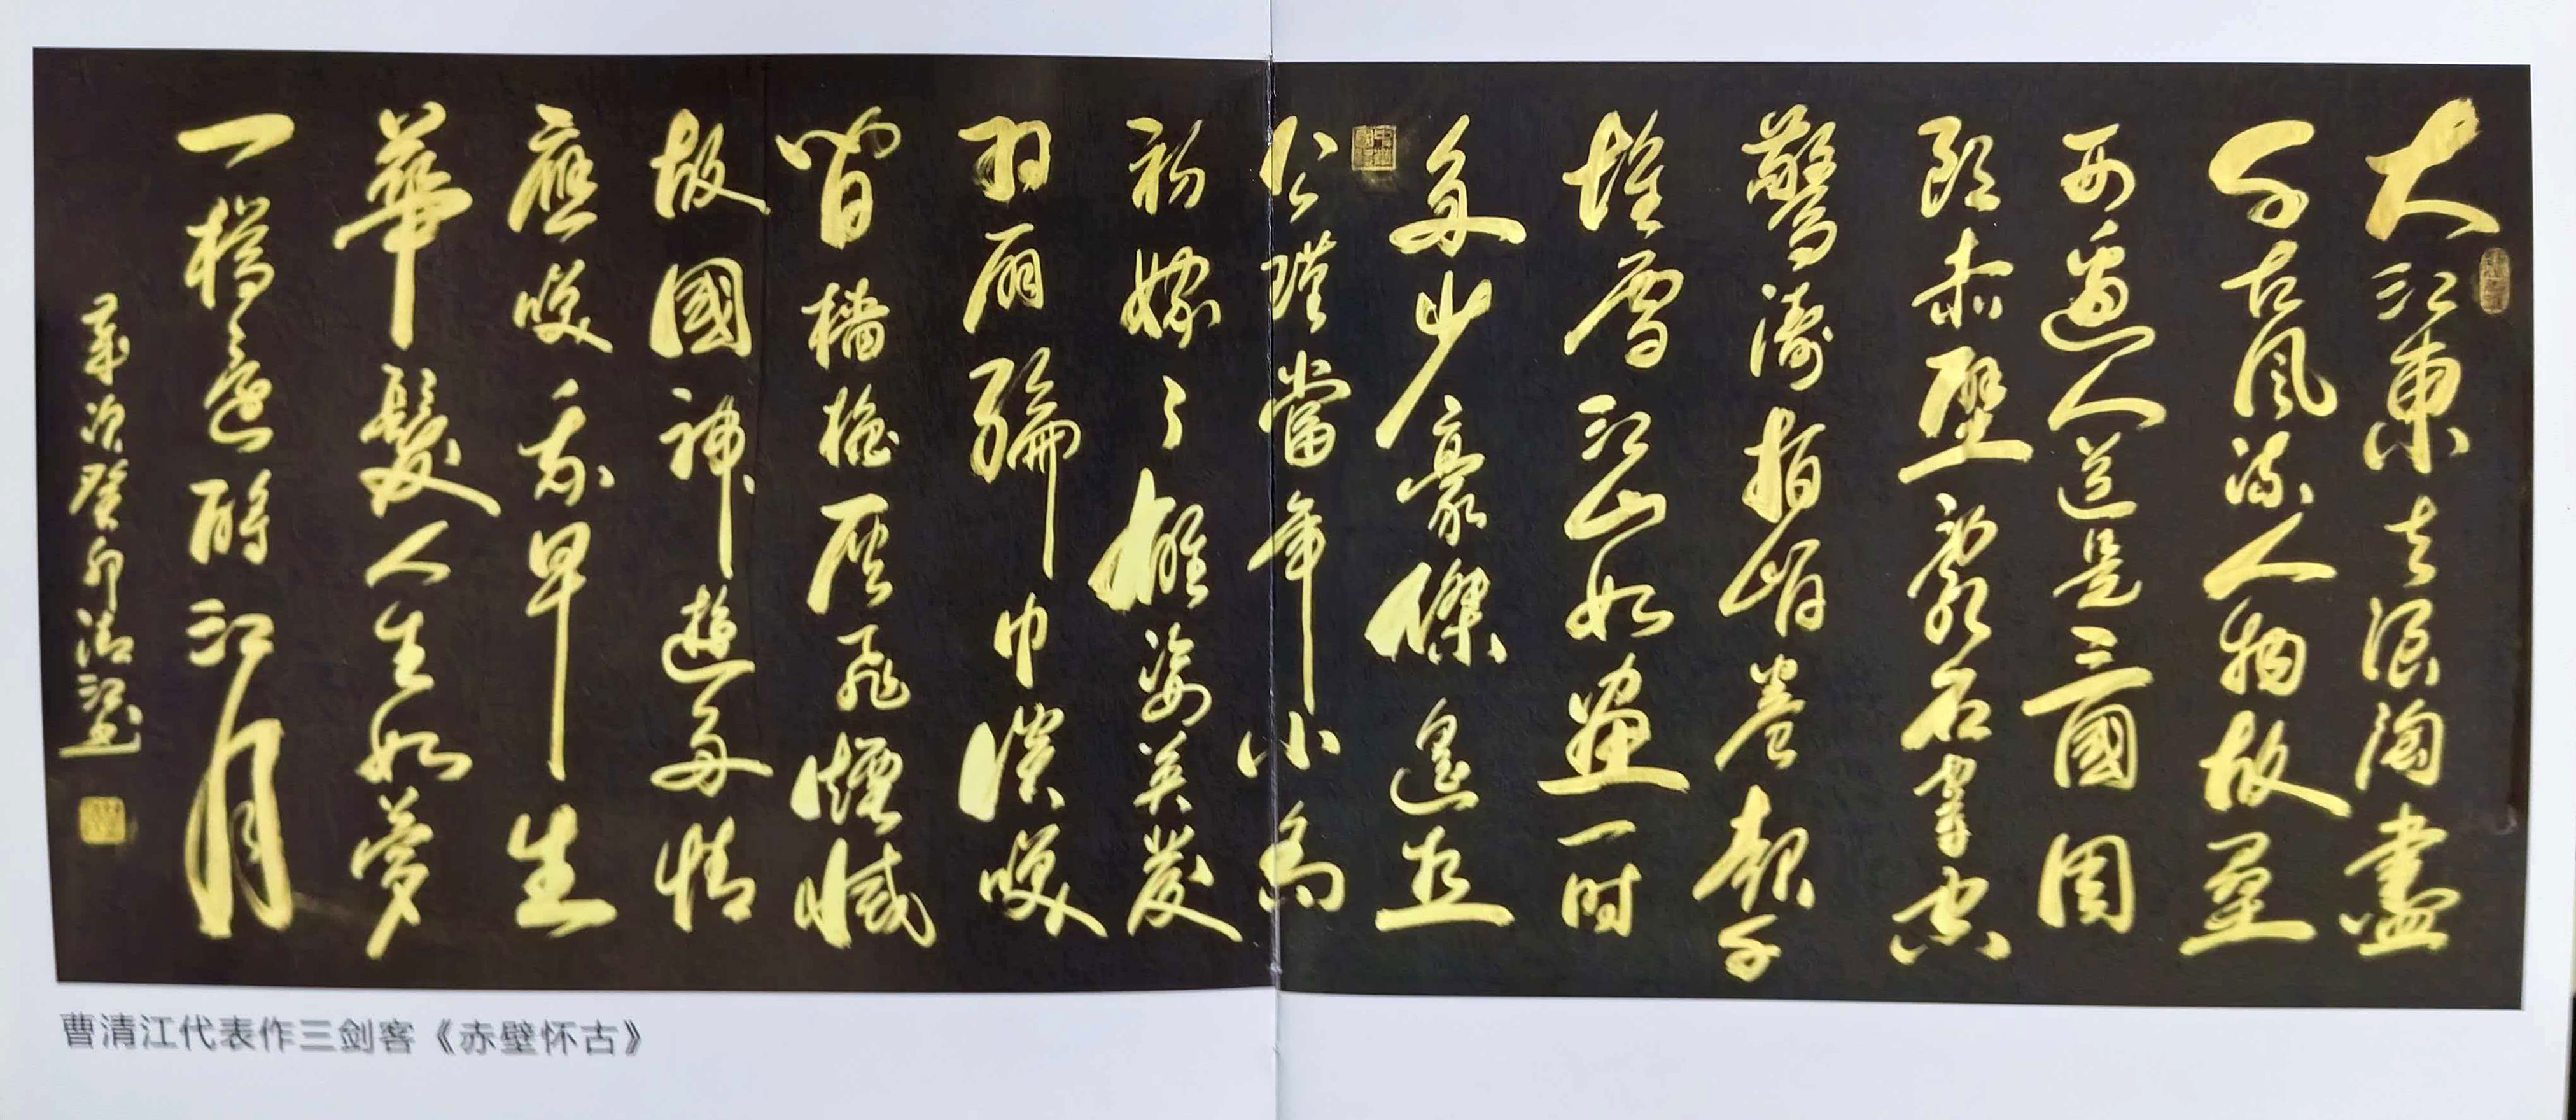 大江東去浪淘盡
千古風流人物故壘
西邊人道是三國周
郎赤壁亂石穿空
驚濤拍岸卷起千
堆雪江山如畫一时
多少豪傑遥想
公瑾當年小喬
初嫁了雄姿英發
羽扇綸巾談笑
間檣櫓灰飛煙滅
故國神遊多情
應笑我早生
華髮人生如夢
一樽還酹江月
歲次癸卯清江書
曹清江代表作三剑客《赤壁怀古》